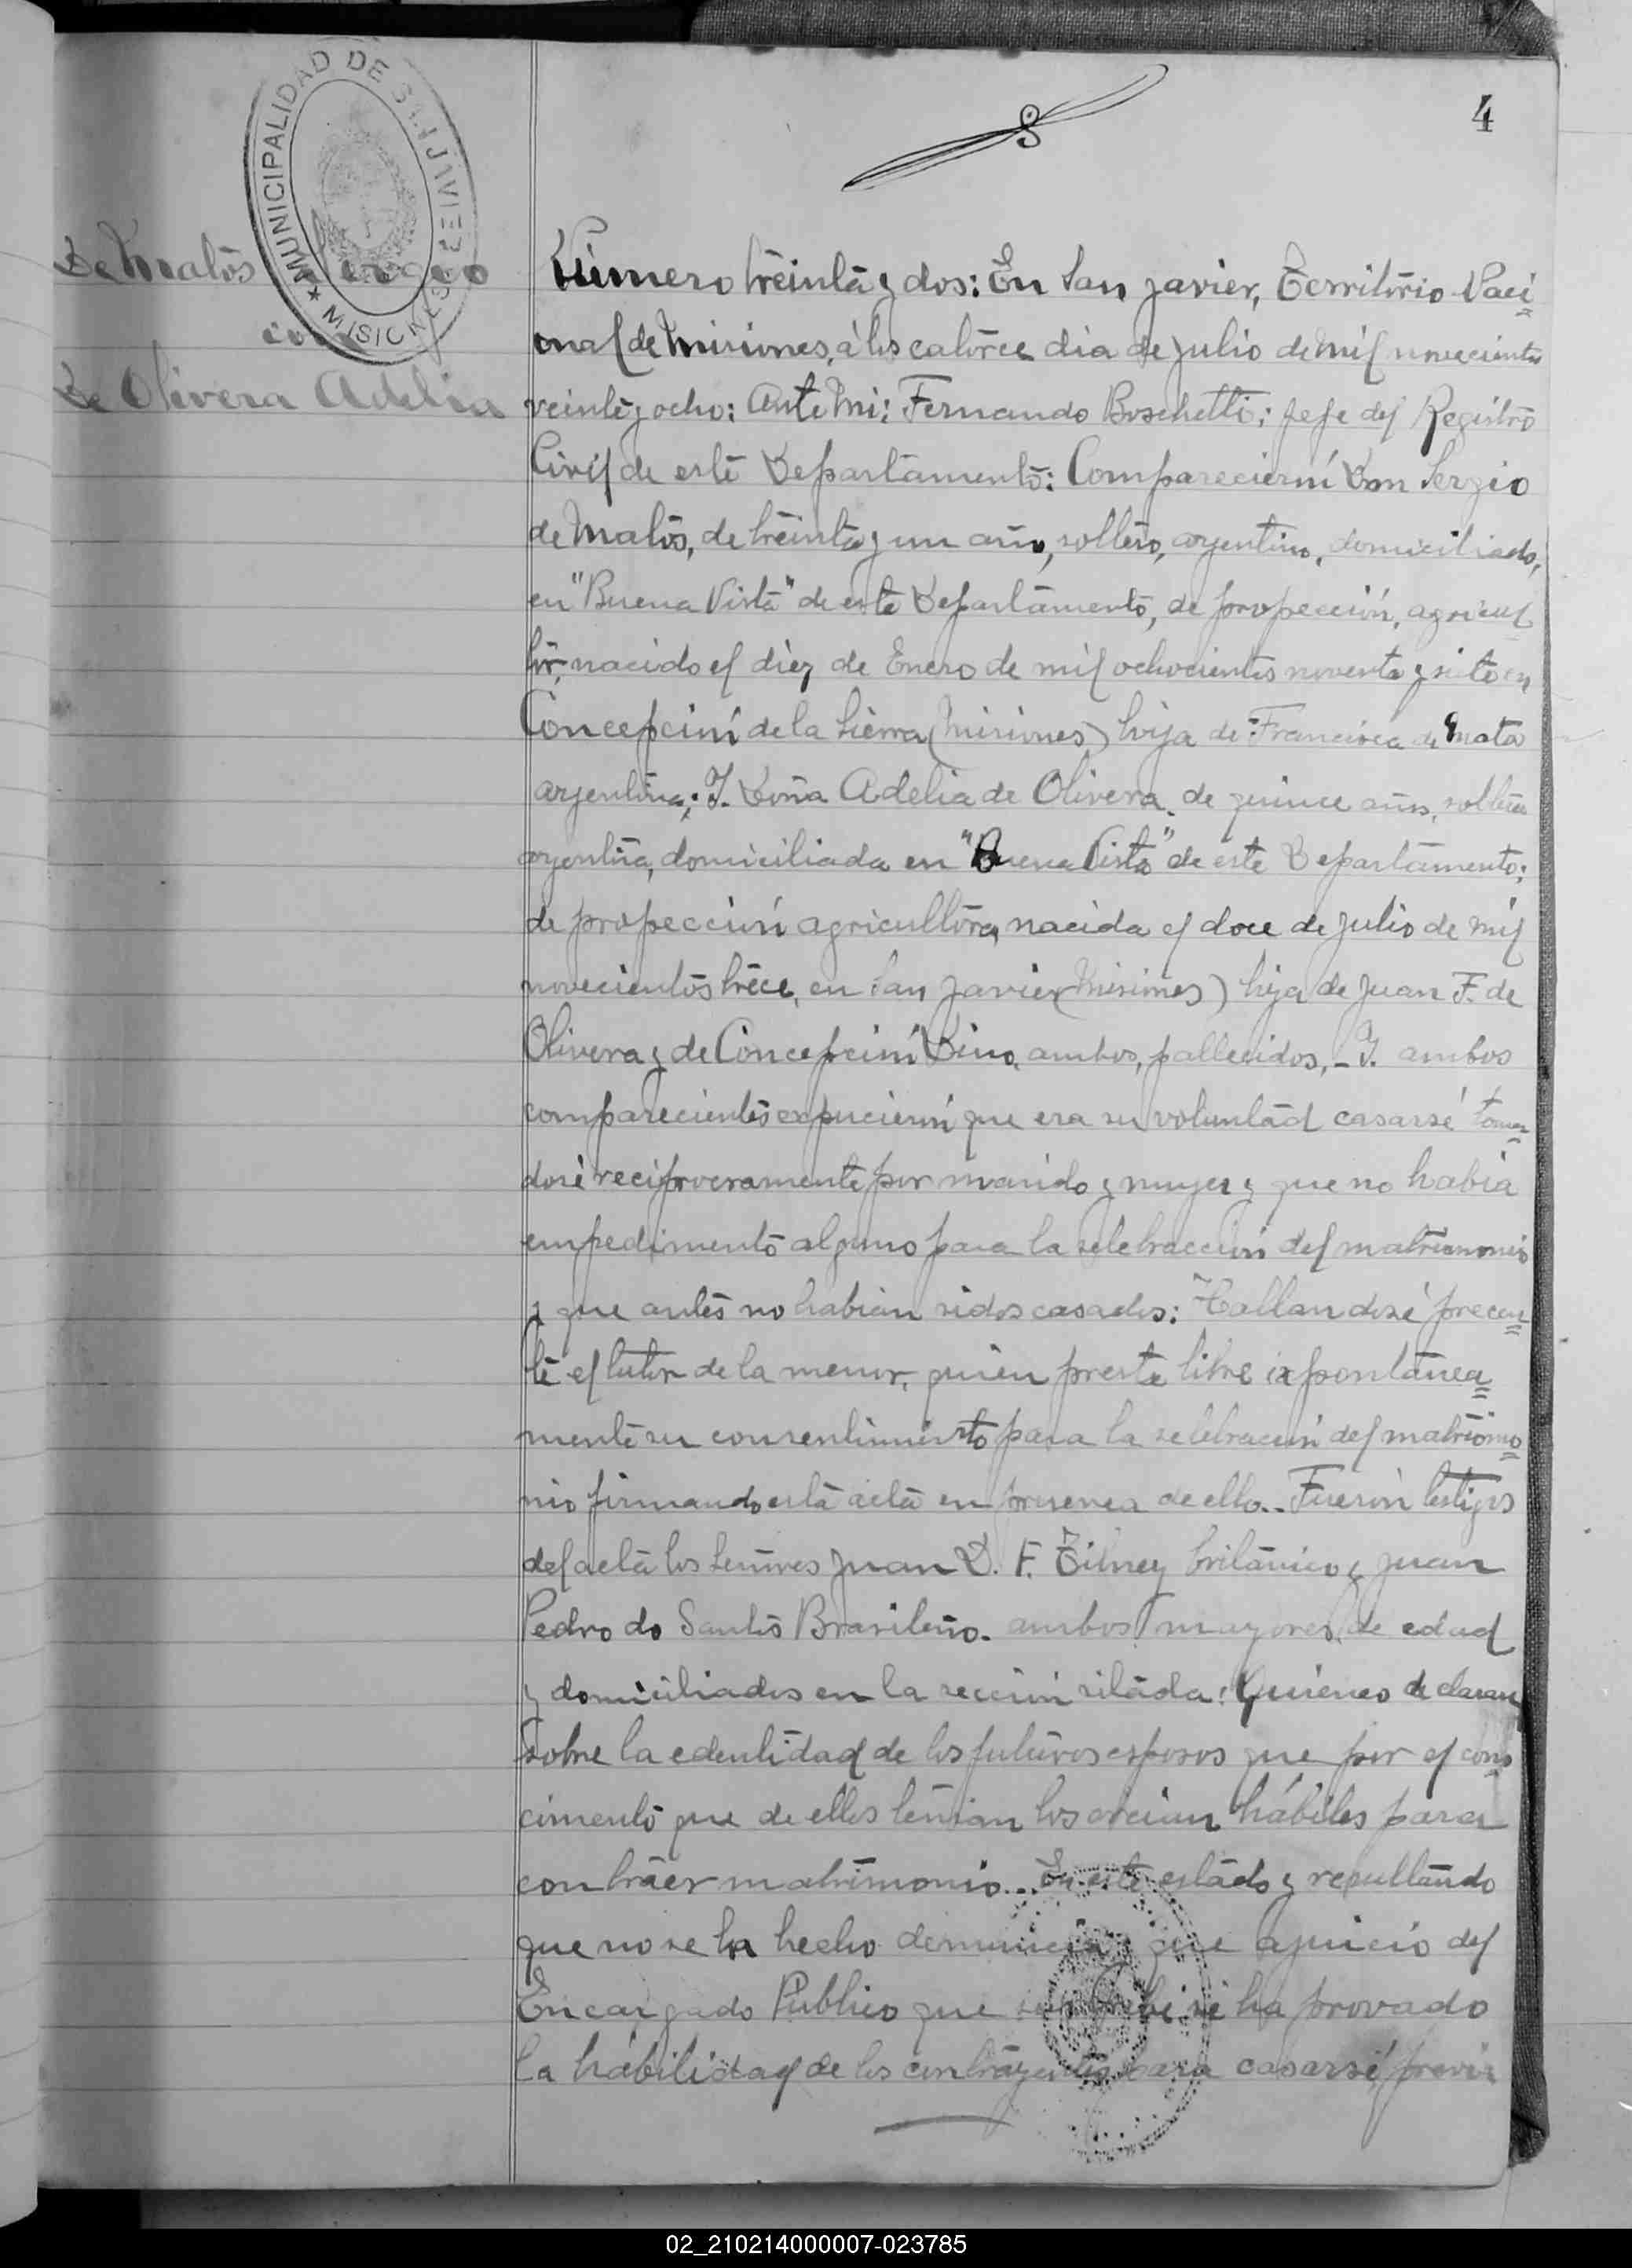 MUNICIPALIDAD DE SAN JAVIER
★ MISIONES
4
De Matos Sergio
con
De Olivera Adelia
Número treinta y dos: En San Javier, Territorio Naci
onal de Misiones, á los catorce dia de Julio de mil novecientos
veinte y ocho: Ante Mi: Fernando Boschetti: Jefe del Registro
Civil de este Departamento: Comparecierón Don Sergio
de Matos, de treinta y un año, soltero, argentino, domiciliado,
en "Buena Vista" de este Departamento, de propección, agricul
tor, nacido el diez de Enero de mil ochocientos noventa y siete en
Concepción de la Sierra (Misiones) hijo de Francisca de Mato
argentina; Y. Doña Adelia de Olivera, de quince años, soltera
argentina, domiciliada en "Buena Vista" de este Departamento;
de propección agricultora, nacida el doce de Julio de mil
novecientos trece, en San Javier (Misiones) hija de Juan F. de
Olivera y de Concepción Dino, ambos, pallecidos, - Y. ambos
comparecientes expucierón que era su voluntad casarsé toman
dosé reciprocramente por marido y muger y que no habia
empedimento alguno para la selebracción del matrimonio
y que antes no habian sidos casados: Hallandosé precen
te el tutor de la menor, quien presta libre expontánea
mente su consentimiento para la selebración del matrimo
nio firmando esta acta en presencia de ello.. Fuerón testigos
del acta los Señores Juan D. F. Tilney británico y Juan
Pedro do Santos Brasileño. ambos mayores de edad
y domiciliados en la sección sitada: Quienes declaran
sobre la edentidad de los futuros esposos que por el cono
cimento que de ellos tenian los creian hábiles para
contraer matrimonio... En este estado y resultando
que no se ha hecho denuncia y que ajuicio del
Encargado Público que suscribe sé ha provado
la habilidad de los contrayentes para casarsé, previa
02_210214000007-023785